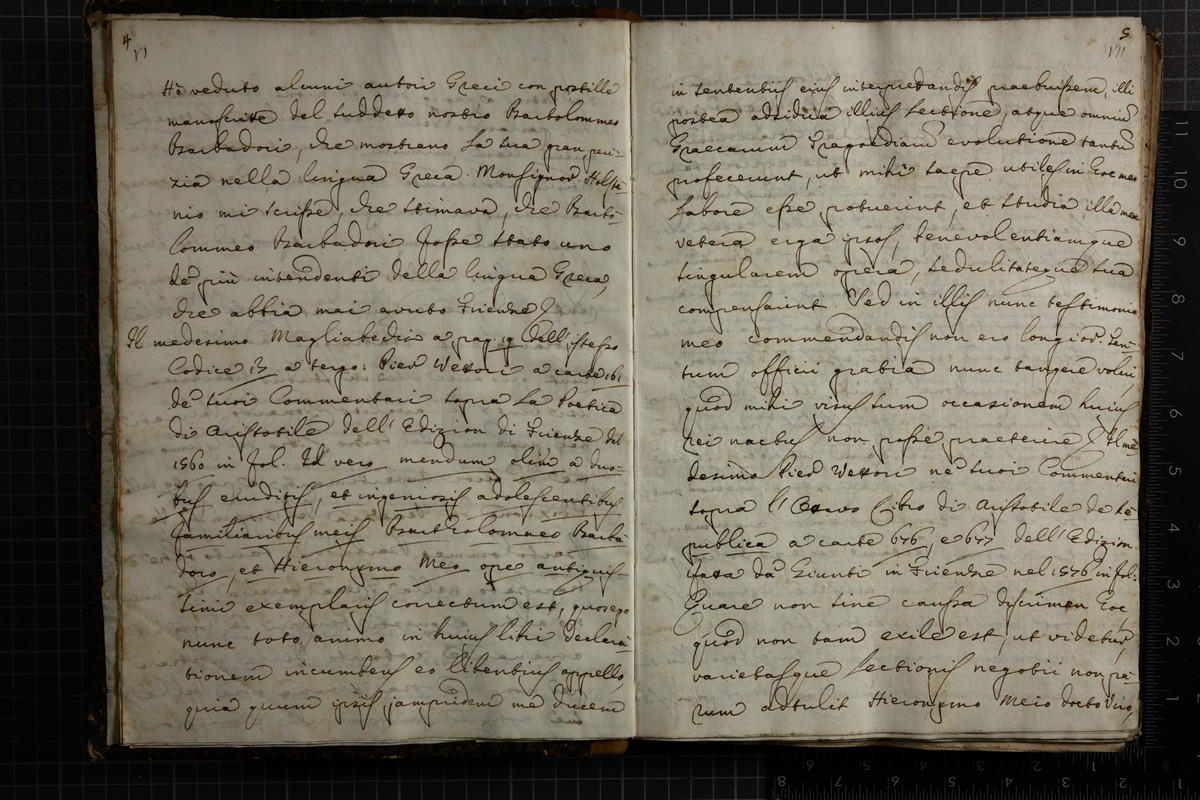 4
VI
Hò veduto alcuni autori Greci con postille
manoscritte del suddetto nostro Bartolommeo
Barbadori, che mostrano la sua gran peri-
zia nella lingua Greca. Monsignor Holste
nio mi scrisse, che stimava, che Barto-
lommeo Barbadori fosse stato uno
de' più intendenti della lingua Greca,
che abbia mai avuto Firenze
Il medesimo Magliabechi a pag. 19 dell'istesso
Codice 13 a tergo: Pier Vettori a carte 161
de' suoi Commentari sopra la Poetica
di Aristotile dell'Edizion di Firenze del
1560 in fol. Id vero mendum olim a duo-
bus eruditis, et ingeniosis adolescentibus
familiaribus meis Bartholomaeo Barba
doro, et Hieronymo Meo ope antiquis-
simi exemplaris correctum est, quos ego
nunc toto animo in huius libri declara
tionem incumbens eo libentius appello,
quia quum ipsis jampridem me ducem
5
VII
in sententiis eius interpretandis praebuissem, illi
postea adsidua illius lectione, atque omnium
Graecarum Tragoediarum evolutione tantum
profecerunt, ut mihi saepe utiles in hoc meo
labore esse potuerint, et studia illa mea
vetera erga ipsos, benevolentiamque
singularem opera, sedulitateque sua
compensarint. Sed in illis nunc testimonio
meo commendandis non ero longior. Tan-
tum officii gratia nunc tangere volui
quod mihi visus sum occasionem huius
rei nactus non posse praeterire Il me
desimo Pier Vettori ne' suoi Commentari
sopra l'Ottavo Libro di Aristotile de Re-
publica a carte 676, e 677 dell'Edizion
fatta da' Giunti in Firenze nel 1576 in fol.
Quare non sine caussa discrimen hoc
quod non tam exile est, ut videtur,
varietasque lectionis negotii non pa-
rum adtulit Hieronymo Meio docto viro,